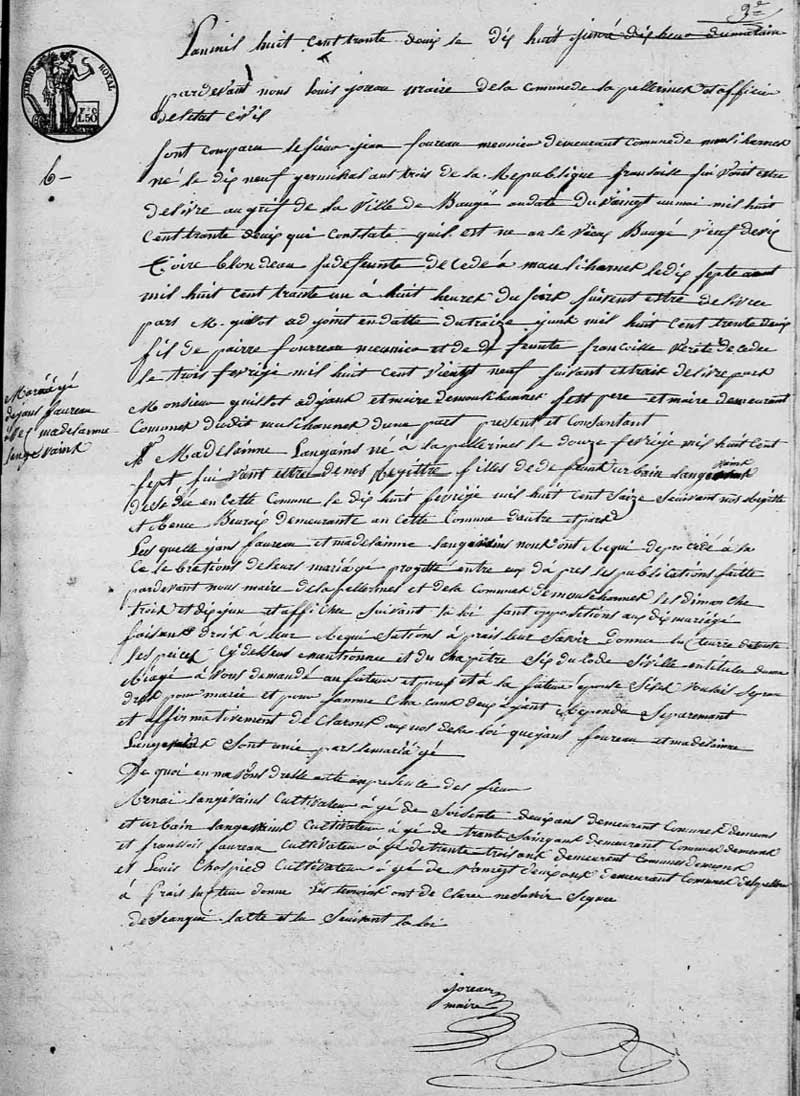 3e
TIMBRE ROYAL
1.50
L'an mil huit cent trante deux le dix huit juin à dix heur du matain
pardevant nous louis joreau maire de la comune de la pellerines et officier
de letat civil
sont comparu le sieur jean foureau meunier demeurant comune de mouliharnes
6-
né le dix neuf germinal ans trois de la Republique fransaise suivant estre
delivre au grif de la ville de Baugé au date du vaingt un mai mil huit
cent trante deux qui constate quil est ne an le vieux Baugé veuf de
toire blondeau de defeunte decedé à mauliharnes le dix sept aout
mil huit cent trante un à huit heures du soir suivent estre delivré
pars M. guillot adjoint en datte du traize juin mil huit cent trente deux
fil de pairre fourreau meunier et de feunte francoisse verité decedee
le trois fevrier mil huit cent vient neuf suivant extrait delivre par
Monsieur guillot adjoint et maire de mouliharnes set pere et maire demeurant
comune dudit mouliharnes dune part present et consantant
Mariagé
de jans faureau
avec madelainne
langevaint
Madelainne langains né à la pellerines le douze fevrier mil huit cent
sept suivant estre de nos registre filles de defeunt urbain langevaint
desedée en cette comune le dix huit fevrier mil huit cent saize seuivant nos registre
et Renee Beurois demeurante an cette comune dautre part
Les quelle jans faureau et madelainne langevains nous ont requi de procédé à la
celebrations de leurs mariagé progetté entre eux da pres les publications faitte
pardevant nous maire de la pellerines et de la comune de mouliharnes les dimanche
trois et dix jun et affiches suivant la loi sant oppositions aux dis mariagé
faisant droit à leur requisitions aprais leur savoir donnee lecteurre de toute
les peices cy dessus mentionnee et du chapitre six du code siville intitulé du ma
riagé à vons demandé au futeur et à la futeur épouse sils voulais se pran
dres pour marie et pour famme cha cuns deux ayant repondu separemant
et affirmativement declarons aux nos de la loi que jans foureau et madelainne
langevaint sont unie pars le mariagé
De quoi en navons dresse acte an presence des sieur
Renai langevains cultivateur agé de soisente deux ans demeurant comunes de
et urbain langevaint cultivateur agé de trente saing ans demeurant comunes de
et fransois faureau cultivateur agé de trente trois ans demeurant comunes de
et Louis Chospied cultivateur agé de vaingt deux ans demeurant comunes de la pellerine
à prais lecteur donne les temoins ont declarer ne savoir signer
de seanqui latte et lu seuivant la loi
joreau
maire